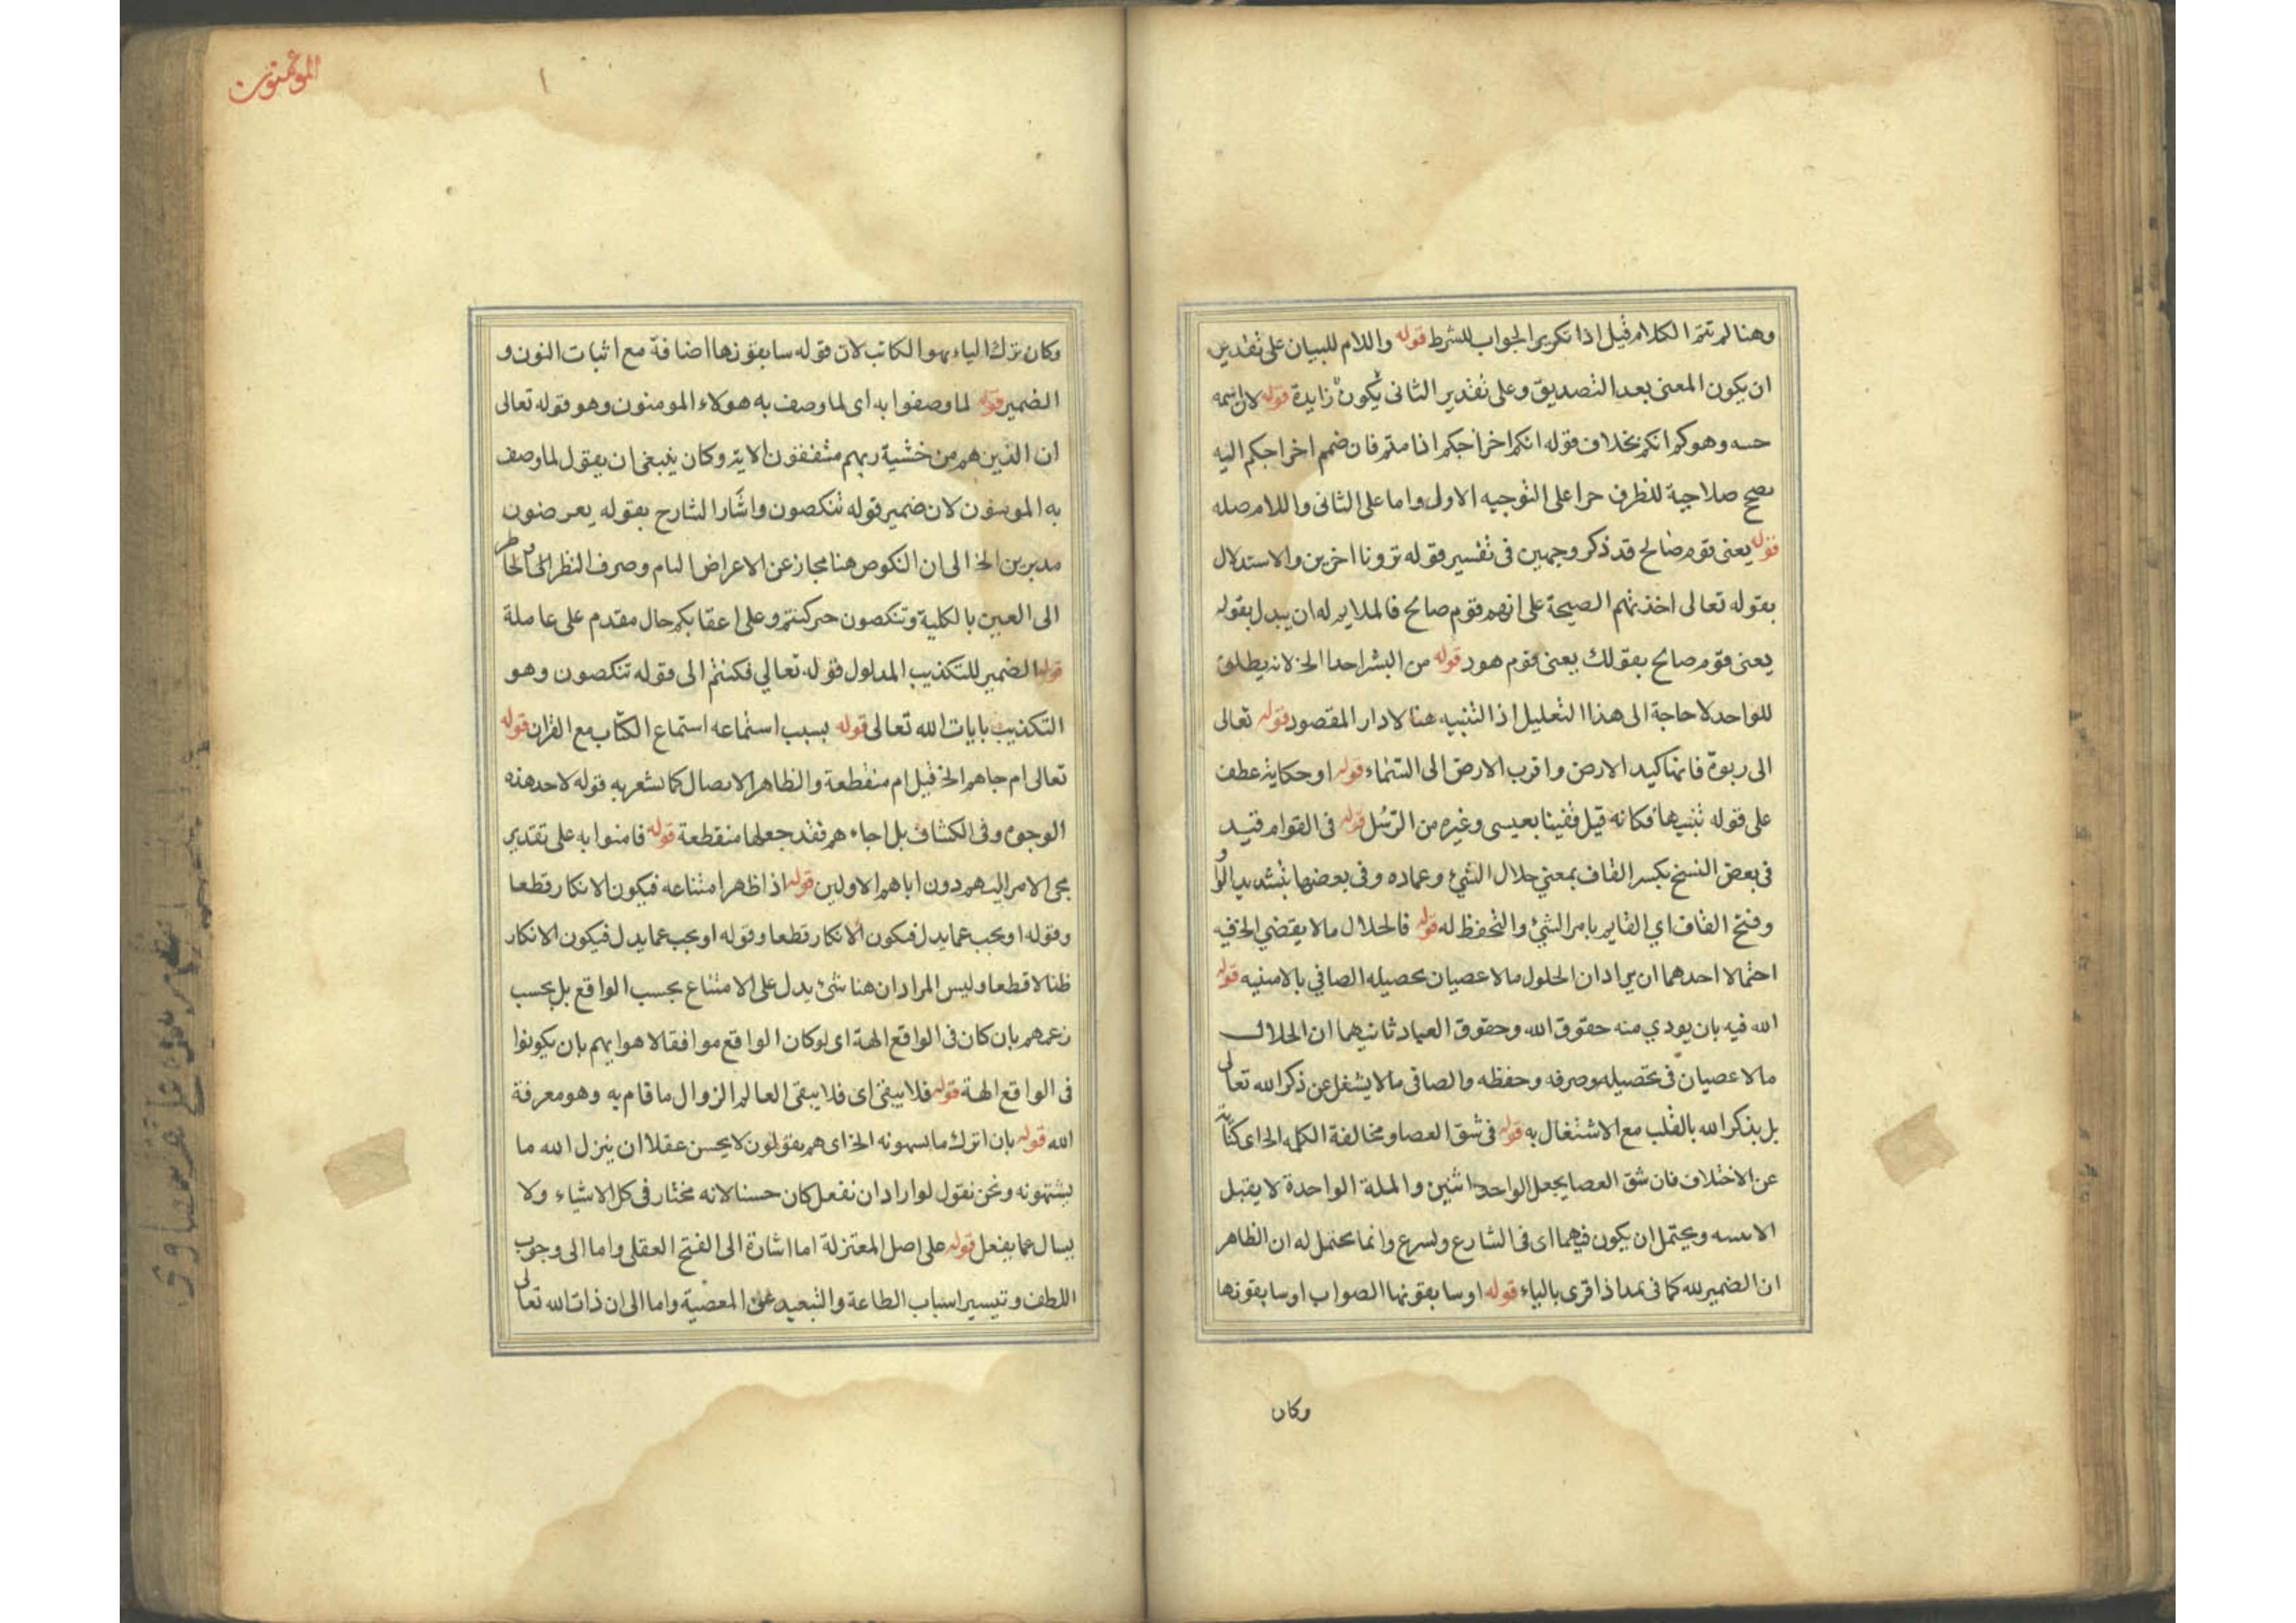 وهنا لم تتم الكلام قيل اذا تكرير الجواب للشرط قوله واللام للبيان على تقدير
ان يكون المعنى بعد التصديق وعلى تقدير الثانى يكون زايدة قوله لان اسمه
حسه وهوكم انكم بخلاف قوله انكم اخراجكم اذا متم فان ضم اخراجكم اليه
يصح صلاحية للظرف حرا على التوجيه الاول واما على الثانى واللام صله
قوله يعنى قوم صالح قد ذكر وجهين فى تفسير قوله قرونا اخرين والاستدلال
بقوله تعالى اخذتهم الصيحة على انهم قوم صالح فالملايم له ان يبدل بقوله
يعنى قوم صالح بقولك يعنى قوم هود قوله من البشر احدا الخ لانه يطلق
للواحد لا حاجة الى هذا التعليل اذ التنبيه هنا لادار المقصود قوله تعالى
الى ربوة فانها كيد الارض واقرب الارض الى السماء قوله او حكاية عطف
على قوله تنبيها فكانه قيل فقينا بعيسى وغيره من الرسل قوله فى القوام قيد
فى بعض النسخ بكسر القاف بمعنى حلال الشئ وعماده وفى بعضها بتشديد الوا
وفتح القاف اي القايم بامر الشئ والتحفظ له قوله فالحلال ما لا يقتضي الخ فيه
احتمالا احدهما ان يراد ان الحلول ما لا عصيان بحصيله الصافي بالامنيه قوله
الله فيه بان يودي منه حقوق الله وحقوق العباد ثانيهما ان الحلال
ما لا عصيان فى تحصيله وصرفه وحفظه والصافى ما لا يشغل عن ذكر الله تعالى
بل يذكر الله بالقلب مع الاشتغال به قوله فى شق العصا ومخالفة الكلمه الخ اى كناية
عن الاختلاف فان شق العصا يجعل الواحد اثنين والملة الواحدة لا يقبل
الاىىىه ويحتمل ان يكون فيهما اى فى الشارع ولسرع وانما يحتمل له ان الظاهر
ان الضمير لله كما فى نمدا ذا قرى بالياء قوله او سابقونها الصواب او سابقونها
وكان
المؤمنون
وكان ترك الياء سهوا لكاتب لان قوله سابقونها اضافة مع اثبات النون و
الضمير قوله لما وصفوا به اى لما وصف به هولاء المومنون وهو قوله تعالى
ان الذين هم من خشية ربهم مشفقون الاية وكان ينبغى ان يقول لما وصف
به الموسفون لان ضمير قوله تنكصون واشار الشارح بقوله يعرضون
مدبرين الخ الى ان النكوص هنا مجاز عن الاعراض التام وصرف النظر الى الخاطر
الى العين بالكلية وتنكصون خبر كنتم وعلى اعقابكم حال مقدم على عاملة
قوله الضمير للتكذيب المدلول قوله تعالي فكنتم الى قوله تنكصون وهو
التكذيب بايات الله تعالى قوله بسبب استماعه استماع الكتاب مع القران قوله
تعالى ام جاهم الخ قيل ام منقطعة والظاهر الاتصال كما تشعر به قوله لاحد هذه
الوجوه وفى الكشاف بل اجاء هم فقد جعلها منقطعة قوله فامنوا به على تقدير
مجى الامر اليهم دون اباهم الاولين قوله اذا ظهر امتناعه فيكون الانكار قطعا
وقوله او يجب عما يدل فيكون الانكار قطعا وقوله او يجب عما يدل فيكون الانكار
ظنا لا قطعا وليس المراد ان هنا شئ يدل على الامتناع بحسب الواقع بل بحسب
زعمهم بان كان فى الواقع الهة اى لو كان الواقع موافقا لاهوايهم بان يكونوا
فى الواقع الهة قوله فلا يبقى اى فلا يبقى العالم الزوال ما قام به وهو معرفة
الله قوله بان اترك ما يسهونه الخ اى هم يقولون لا يحسن عقلا ان ينزل الله ما
يشتهونه ونحن نقول لو اراد ان نفعل كان حسنا لانه مختار فى كل الاشياء ولا
يسال عما يفعل قوله على اصل المعتزلة اما اشارة الى الفتح العقلى واما الى وجوب
اللطف وتيسير اسباب الطاعة والتبعيد عن المعصية واما الى ان ذات الله تعالى